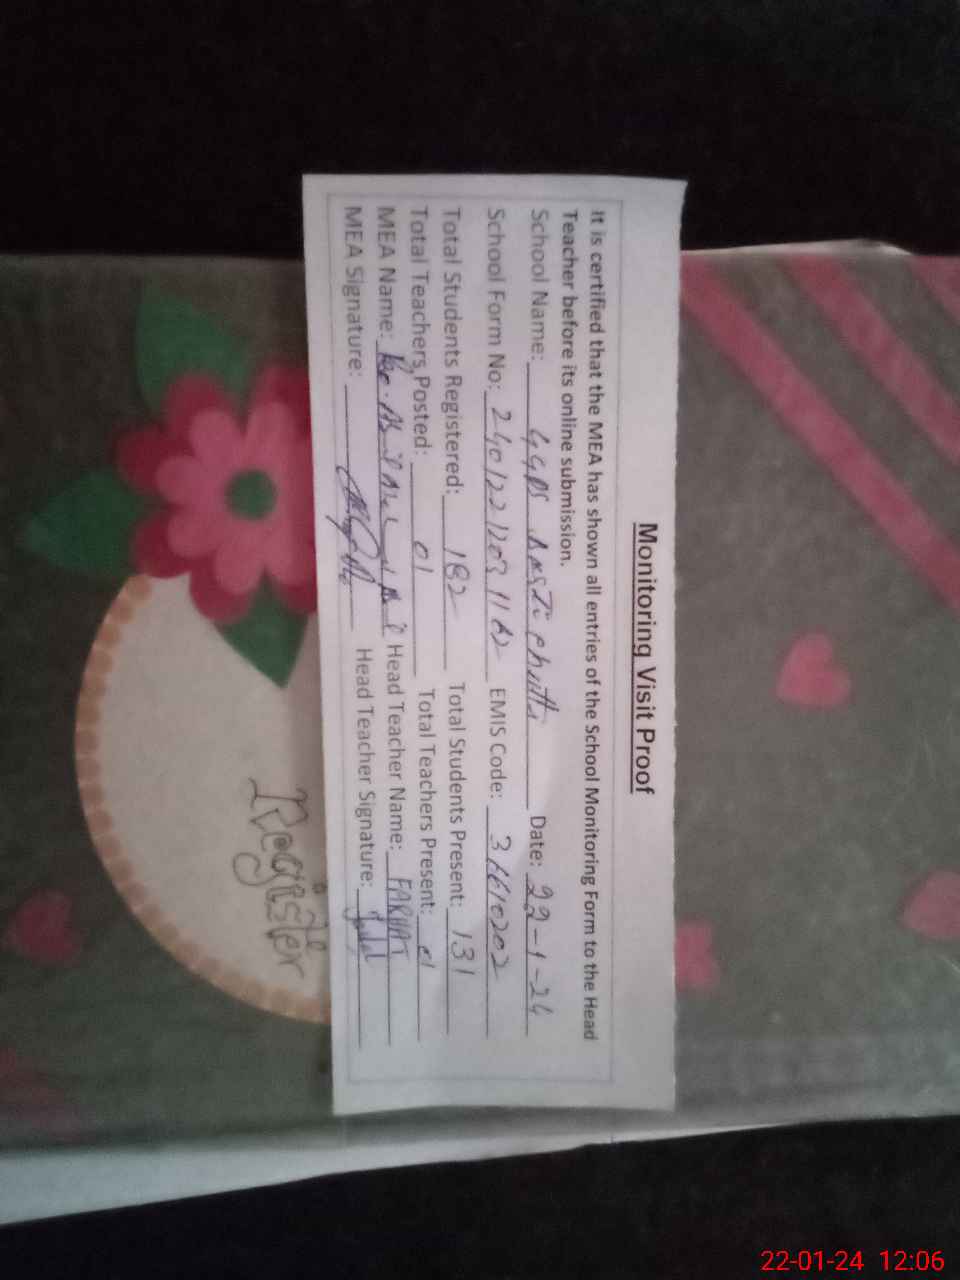 Monitoring Visit Proof
It is certified that the MEA has shown all entries of the School Monitoring Form to the Head
Teacher before its online submission.
School Name: GGPS Basti Chutta Date: 22-1-24
School Form No: EMIS Code: 36610202
Total Students Registered: 182 Total Students Present: 131
Total Teachers Posted: 01 Total Teachers Present: 01
MEA Name: Head Teacher Name: FARHAT
MEA Signature: Head Teacher Signature:
Register
22-01-24 12:06